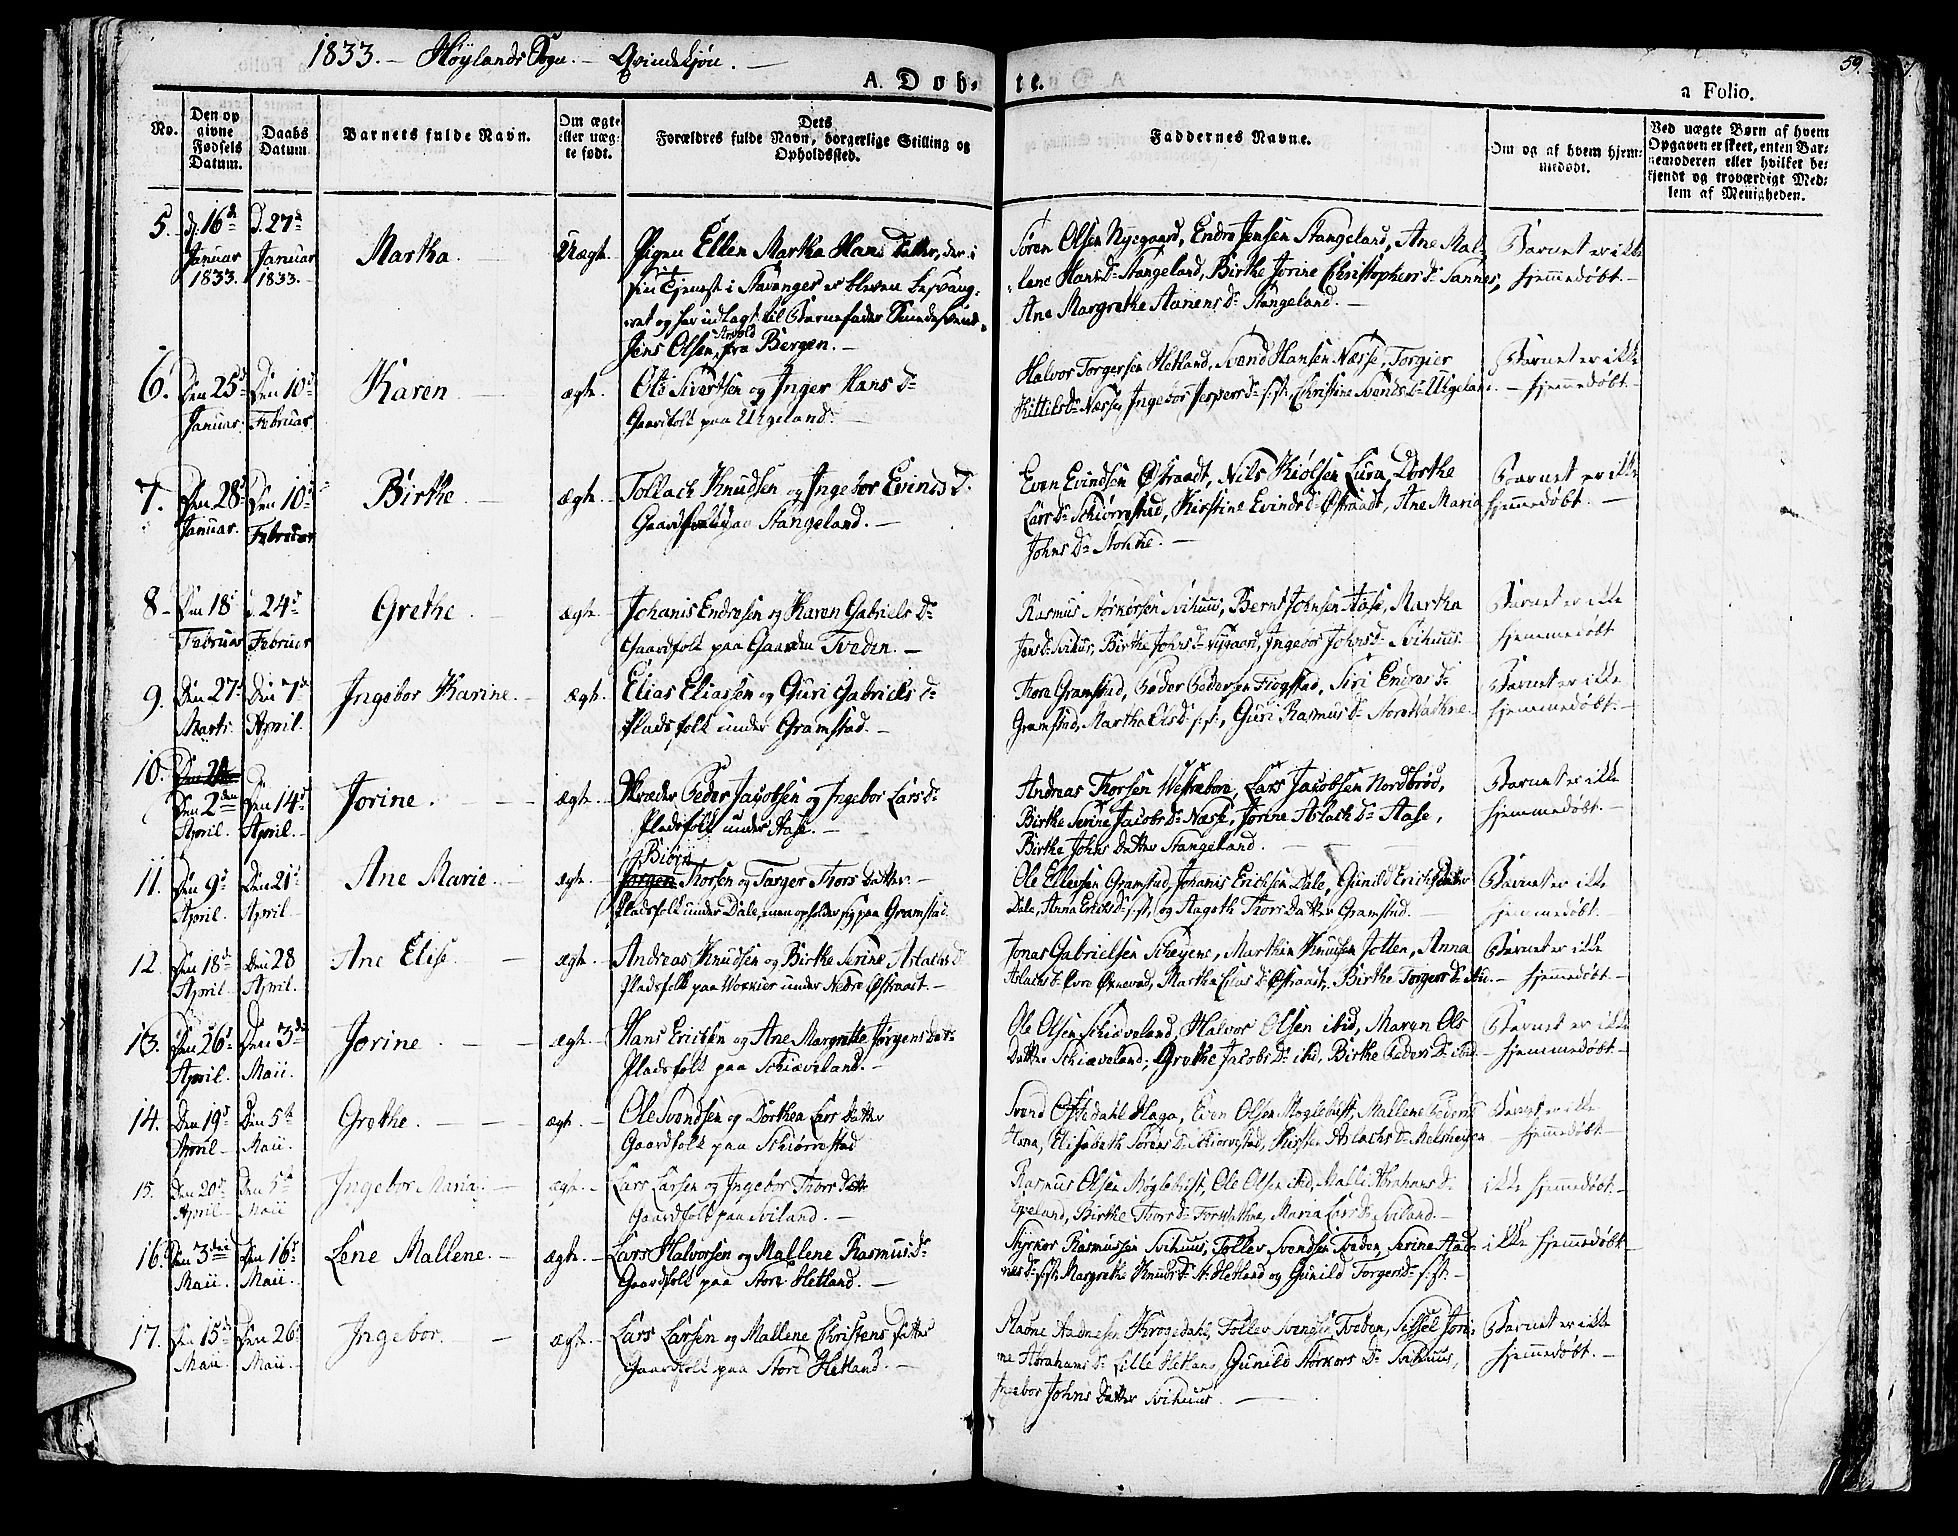 1833. - Høylands Sogn. - Qvindekjøn. -
59.
A. Døb- te.
a Folio.
No.
Den op givne Fødsels Datum.
Daabs Datum
Barnets fulde Navn.
Om ægte eller uæg- te født.
Dets Forældres fulde Navn, borgerlige Stilling og Opholdssted.
Faddernes Navne.
Om og af hvem hjem- medøbt.
Ved uægte Børn af hvem Opgaven er skeet, enten Bar- nemoderen eller hvilket be- kjendt og troværdigt Med- lem af Menigheden.
5. d. 16de Januar 1833. d. 27de Januar 1833. Martha. Uægte. Pigen Ellen Martha Hans Datter, der i
sin Tjenest i Stavanger er bleven besvang-
ret og har udlagt til Barnefader Smedesvend
Jens Olsen fra Bergen. -
Søren Olsen Nyegaard, Endre Jensen Stangeland, Ane Mal-
lene Hans Dr Stangeland, Birthe Jorine Christophers Dr Sannes,
Ane Margrethe Dr Stangeland. -
Barnet er ikke
hjemmedøbt. -
6. Den 25de Januar. Den 10de Februar. Karen ægte. Ole Sivertsen og Inger Hans Dr
Gaardfolk paa Uigeland. -
Halvor Torgersen Hetland, Svend Hansen Næsse, Torgier
Kittels Dr Næsse, Ingebor Jespers Dr s.st., Christine Svends Dr Uigeland.
Barnet er ikke
- hjemmedøbt -
7. Den 28de Januar. Den 10de Februar Birthe - ægte. Tollach Knudsen og Ingebor Evinds Dr
Gaardfolk paa Stangeland. -
Even Evindsen Østraadt, Nils Kiølsen Lura, Dorthe
Lars Dr Schiørrestad, Kirstine Evinds Dr Østraadt, Ane Maria
Johns Dr Stokke. -
Barnet er ikke
hjemmedøbt. -
8 - Den 18de Februar d. 24de Februar Grethe. ægte. Johanis Endresen og Karen Gabriels Dr
Gaardfolk paa Gaarden Tveden. -
Rasmus Svihuus, Bernt Johnsen Aase, Martha
Jens Dr Svihus, Birthe Johns Dr Nygaard, Ingebor Johns Dr Svihuus.
Barnet er ikke
hjemmedøbt
9. Den 27de Marts. Den 7de April. Ingebor Karine. - ægte. Elias Eliassen og Guri Gabriels Dr
Pladsfolk under Gramstad. -
Thore Gramstad, Peder Pedersen Fiogstad, Siri Endres Dr
Gramstad, Martha Ols Dr s.st., Guri Rasmus Dr Store Watne.
Barnet er ikke
hjemmedøbt. -
10. Den 2den April. Den 14de April. Jorine. - ægte. Skræder Peder Jacobsen og Ingebor Lars Dr
Pladsfolk under Aase. -
Andreas Thorsen Westrebøre, Lars Jacobsen Nordbrød,
Birthe Serine Jacobs Dr Næsse, Jorine Aslach Dr Aase,
Birthe Johns Datter Stangeland. -
Barnet er ikke
hjemmedøbt. -
11. Den 9de April. Den 21de April. Ane Marie. - ægte. Biørn
Jørgen Thorsen og Torger Thors Datter.
Pladsfolk under Dale, men opholder sig paa Gramstad.
Ole Ellevsen Gramstad, Johanis Erichsen Dale, Gunild Erichs Datter
Dale, Anna Erichs Dr s.st., og Aagoth Thors Datter Gramstad. -
Barnet er ikke
hjemmedøbt.
12. Den 18de April. Den 28 April. Ane Elise. - ægte. Andreas Knudsen og Birthe Serine Aslachs Dr
Pladsfolk paa under Nedre Østraadt. -
Jonas Gabrielsen Schejene, Marthin Knudsen Jotten, Anna
Aslachs Dr Martha Elias Dr Østraadt, Birthe Torgers Dr ibid. -
Barnet er ikke
hjemmedøbt. -
13. Den 26de April. Den 3die Maii. Jorine. - ægte. Hans Erichsen og Ane Margrethe Jørgens Dat-
Pladsfolk paa Schiæveland. -
Ole Olsen Schiæveland, Halvor Olsen ibid, Maren Ols
Datter Schiæveland, Grethe Jacobs Dr ibid, Birthe Peders Dr ibid -
Barnet er ikke
hjemmedøbt. -
14. Den 19de April - Den 5te Maii. Grethe. - ægte. - Ole Svendsen og Dorthea Lars Datter
Gaardfolk paa Schiørrestad
Svend Ofstedahl Haga, Even Olsen Møglebust, Mallene Peders
Hana, Elisabeth Sørens Dr Schiørrestad, Kirsten Aslachs Dr Melshejen
Barnet er ikke
- hjemmedøbt -
15. Den 20de April - Den 5te Maii Ingebor Maria. - ægte. - Lars Larsen og Ingebor Thors Datt
Gaardfolk paa Sviland. -
Rasmus Olsen Møglebust, Ole Olsen ibid, Malli Abrahams Dr
Epeland, Birthe Thors Dr Maria Lars Dr Sviland. -
ikke hjemmedøbt. -
16. Den 3die Maii. Den 16de Maii. Lene Mallene. - ægte. Lars Halvorsen og Mallene Rasmus Dr
Gaardfolk paa Store Hetland. -
Styrkor Rasmussen Svihuus, Tollev Svendsen Tveden, Serine
s.st. Margrethe Knuds Dr St. Hetland og Gunild Torgers Dr s.st. -
ikke hjemmedøbt -
17. Den 15de Maii. Den 26de Maii. Ingebor. - ægte. Lars Larsen og Mallene Christens Datter
Gaardfolk paa Store Hetland. -
Aadnesen Krogedahl, Tollev Svendsen Tveden, Sissel Jori-
ne Abrahams Dr Lille Hetland, Gunild Størkors Dr Svihuus,
Ingebor Johns Datter Svihuus. -
Barnet er ikke
hjemmedøbt. -